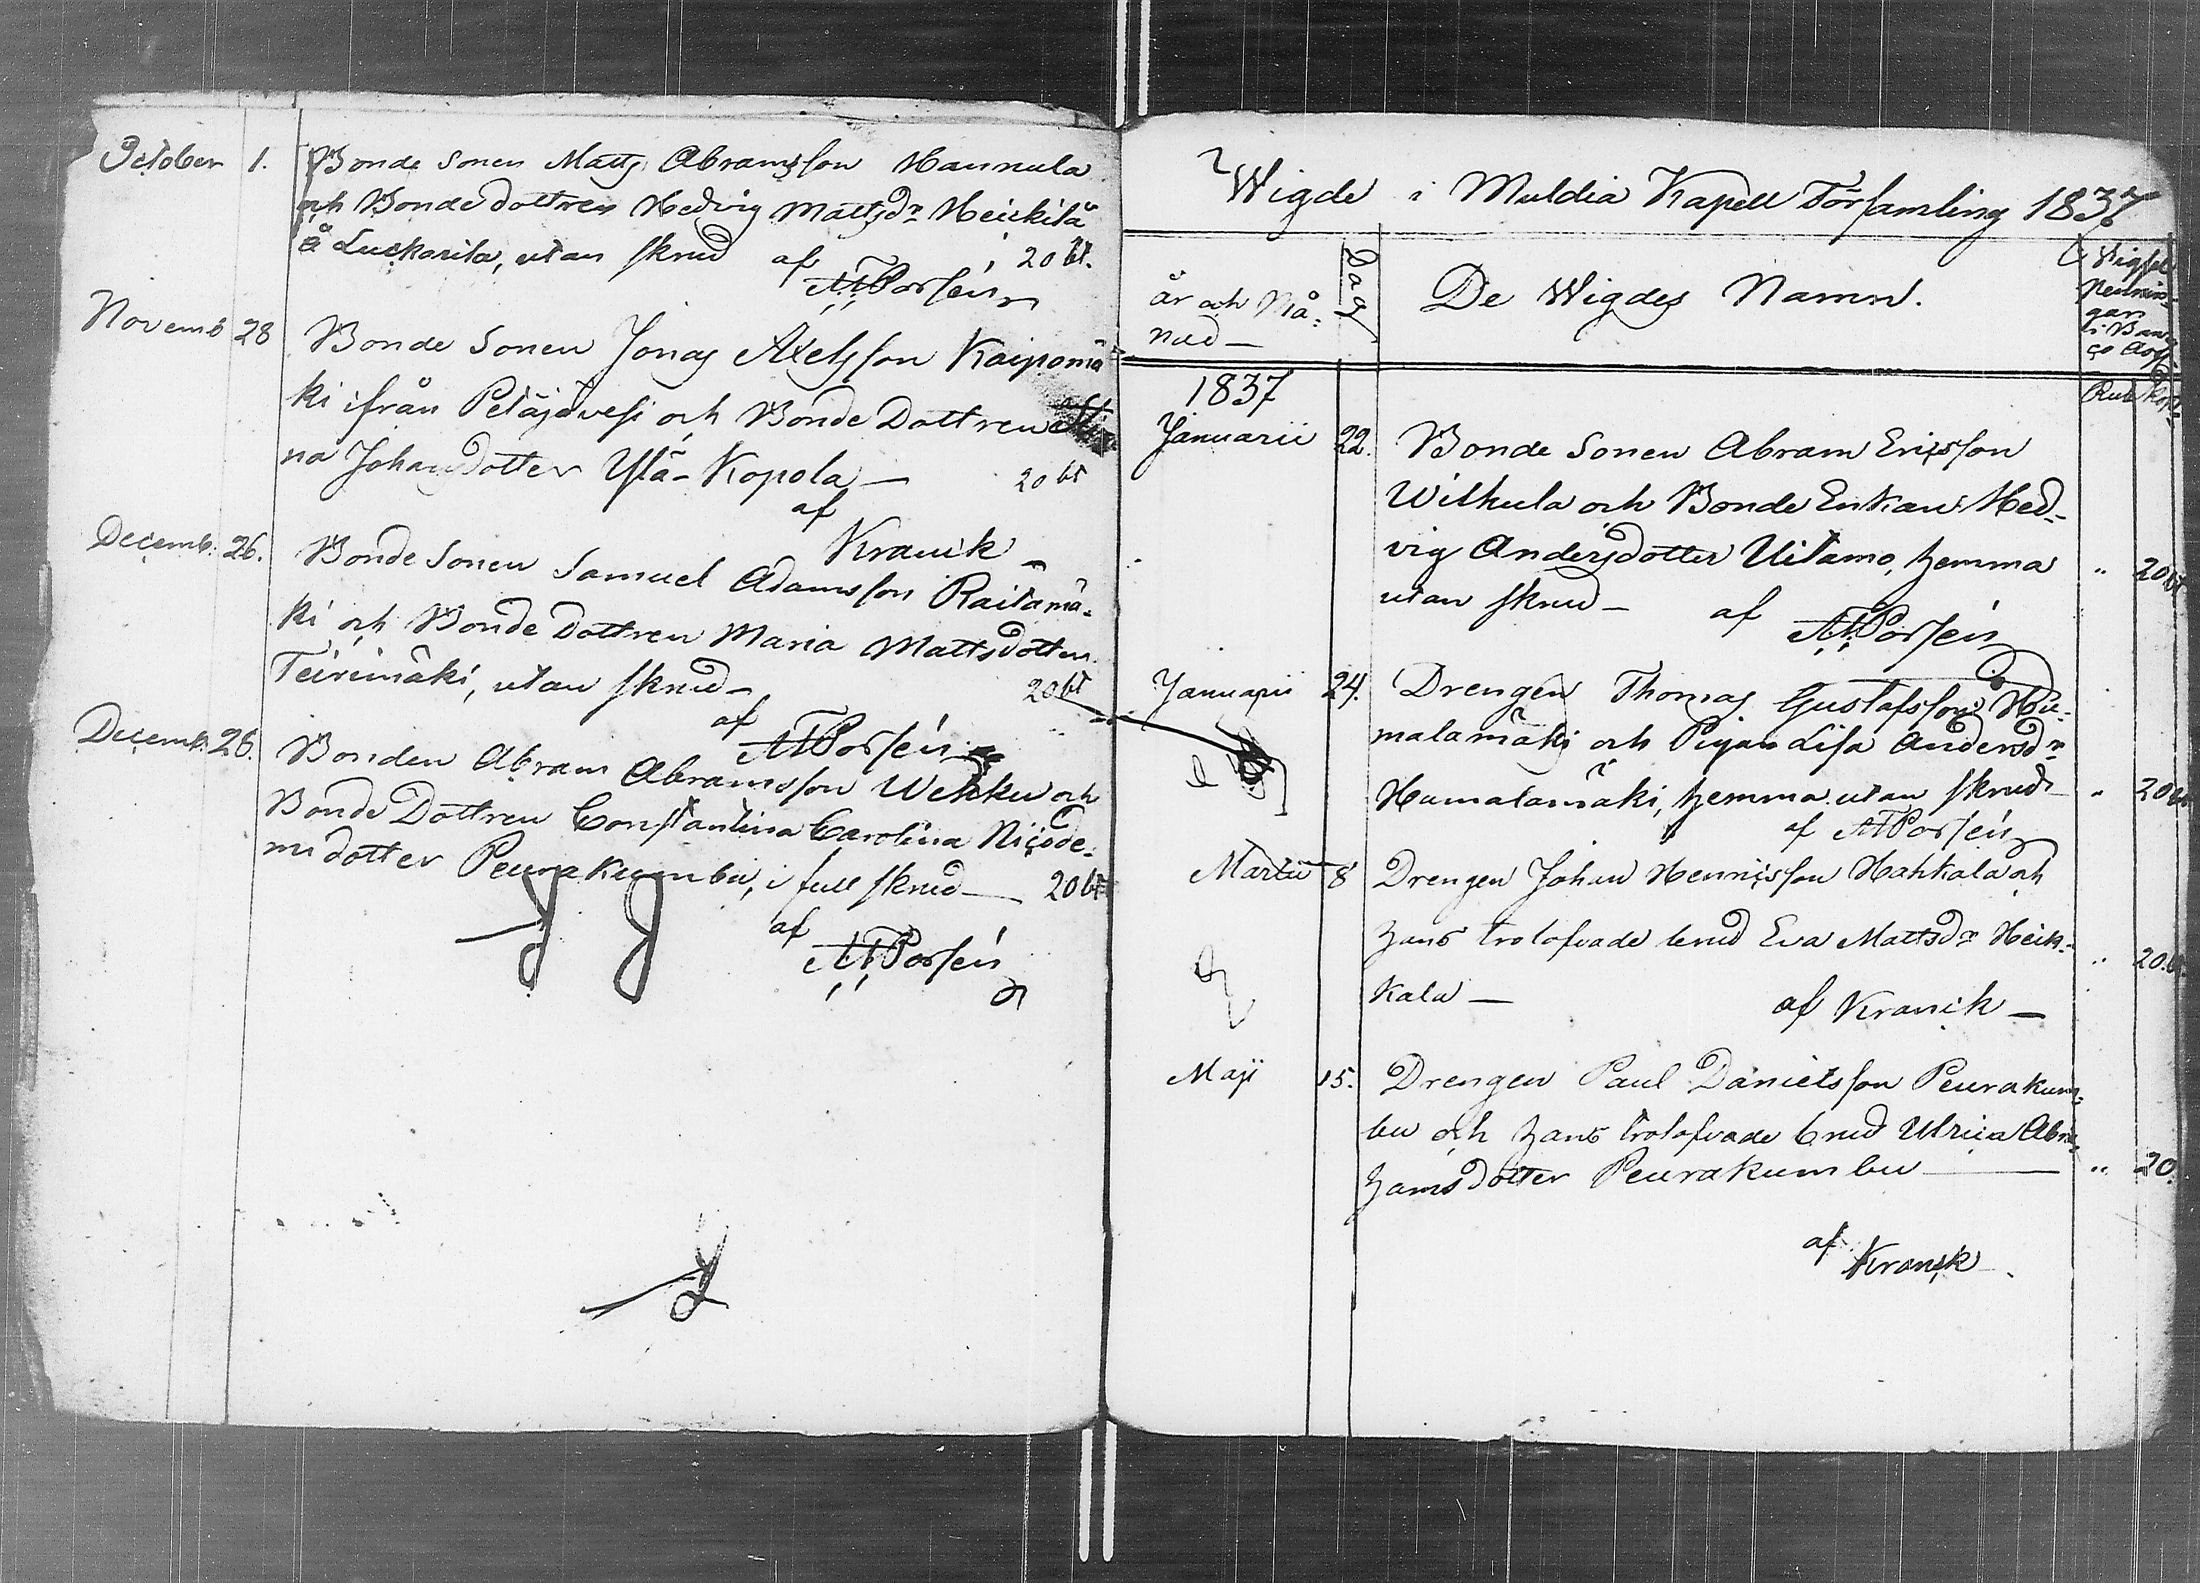 October 1. Bonde Sonen Matts Abramsson Hannula
och Bondedottren Hedvig Mattsdr Heickilä
å Luckarila, utan skrud 20 bt.
af
A:A:Porsén
Novemb 28 Bonde Sonen Jonas Axelsson Kaipomä-
ki ifrån Petäjävesi och Bonde Dottren
na Johansdotter Ylä-Kopola — 20 bt
af
Kranck —
Decemb: 26. Bonde Sonen Samuel Adamsson Raitamä-
ki och Bonde Dottren Maria Mattsdotter
Teirimäki, utan skrud — 20 bt
af
A:A:Porsén
Decemb: 26. Bonden Abram Abramsson Wehku och
Bonde Dottren Constantina Carolina Nicode-
mi dotter Peurakumbu, i full skrud — 20 bt
af
A:A:Porsén
Wigde i Muldia Kapell Församling 1837
år och Må-
nad —
Dag
De Wigdes Namn.
Wigsel
Pennin-
gar
i Ban
co Ass
Rub Kop.
1837
Januarii 22. Bonde Sonen Abram Ericsson
Wilkula och Bonde Enkan Hed-
vig Andersdotter Uitamo, hemma " 20 bt
utan skrud — af
A:A:Porsén
Januarii 24. Drengen Thomas Gustafsson Hu-
malamäki och Pigan Lisa Andersdr
Humalamäki, hemma utan skrud " 20 bt
af A:A:Porsén
Martii 8 Drengen Johan Henricsson Hahkala och
hans trolofvade brud Eva Mattsdr Heik-
kala — " 20. bt
af Kranck —
Maji 15. Drengen Paul Danielsson Peurakum-
bu och hans trolofvade brud Ulrica Abra-
hamsdotter Peurakumbu — " 20.
af
Kranck